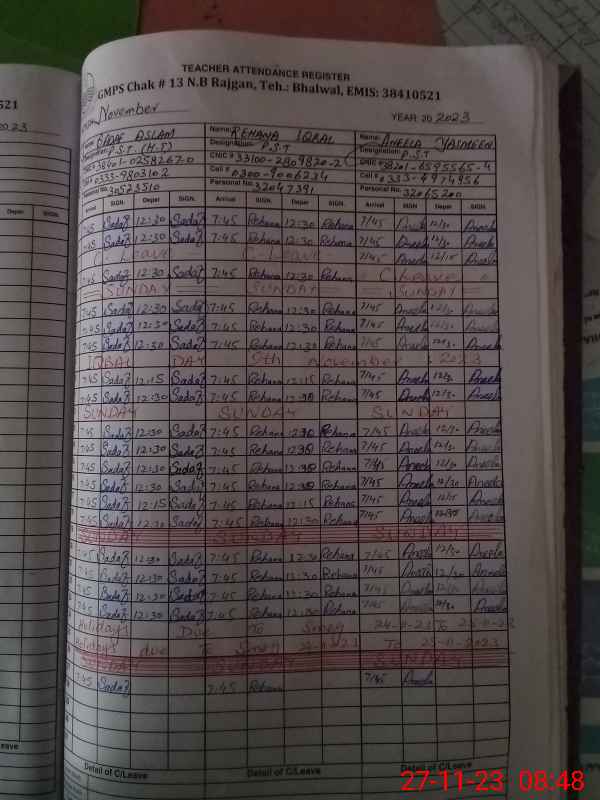 521
TEACHER ATTENDANCE REGISTER
GMPS Chak # 13 N.B Rajgan, Teh.: Bhalwal, EMIS: 38410521
November YEAR 20 2023
023
ASLAM Name: REHANA IQBAL Name: ANEELA YASMEEN
Designation: P.S.T. (H.T) Designation: P.S.T Designation: P.S.T
38401-0258267-0 CNIC # 33100-2809820-2 CNIC # 38201-6595565-4
Cell # 0333-9803102 Cell # 0300-9006234 Cell # 0333-4974956
Personal No. 30523510 Personal No. 32047391 Personal No. 32065200
Arrival SIGN. Deper SIGN. Arrival SIGN. Deper SIGN. Arrival SIGN. Deper SIGN.
7:45 Sadaf 12:30 Sadaf 7:45 Rehana 12:30 Rehana 7/45 Aneela 12/30 Aneela
7:45 Sadaf 12:30 Sadaf 7:45 Rehana 12:30 Rehana 7/45 Aneela 12/30 Aneela
C-Leave C-Leave 7/45 Aneela 12/15 Aneela
7:45 Sadaf 12:30 Sadaf 7:45 Rehana 12:30 Rehana C Leave
SUNDAY SUNDAY SUNDAY
7:45 Sadaf 12:30 Sadaf 7:45 Rehana 12:30 Rehana 7/45 Aneela 12/30 Aneela
7:45 Sadaf 12:30 Sadaf 7:45 Rehana 12:30 Rehana 7/45 Aneela 12/30 Aneela
7:45 Sadaf 12:30 Sadaf 7:45 Rehana 12:30 Rehana 7/45 Aneela 12/30 Aneela
IQBAL DAY 9th November, 2023
7:45 Sadaf 12:15 Sadaf 7:45 Rehana 12:15 Rehana 7/45 Aneela 12/30 Aneela
7:45 Sadaf 12:30 Sadaf 7:45 Rehana 12:30 Rehana 7/45 Aneela 12/30 Aneela
SUNDAY SUNDAY SUNDAY
7:45 Sadaf 12:30 Sadaf 7:45 Rehana 12:30 Rehana 7/45 Aneela 12/30 Aneela
7:45 Sadaf 12:30 Sadaf 7:45 Rehana 12:30 Rehana 7/45 Aneela 12/30 Aneela
7:45 Sadaf 12:30 Sadaf 7:45 Rehana 12:30 Rehana 7/45 Aneela 12/30 Aneela
7:45 Sadaf 12:30 Sadaf 7:45 Rehana 12:30 Rehana 7/45 Aneela 12/30 Aneela
7:45 Sadaf 12:15 Sadaf 7:45 Rehana 12:15 Rehana 7/45 Aneela 12/15 Aneela
7:45 Sadaf 12:30 Sadaf 7:45 Rehana 12:30 Rehana 7/45 Aneela Aneela
SUNDAY SUNDAY SUNDAY
7:45 Sadaf 12:30 Sadaf 7:45 Rehana 12:30 Rehana 7/45 Aneela 12/30 Aneela
7:45 Sadaf 12:30 Sadaf 7:45 Rehana 12:30 Rehana 7/45 Aneela 12/30 Aneela
7:45 Sadaf 12:30 Sadaf 7:45 Rehana 12:30 Rehana 7/45 Aneela 12/30 Aneela
7:45 Sadaf 12:30 Sadaf 7:45 Rehana 12:30 Rehana 7/45 Aneela 12/30 Aneela
Holidays Due To Smog 24-11-23 To 25-11-23
Holidays due To Smog 24-11-2023 To 25-11-2023
SUNDAY SUNDAY SUNDAY
7:45 Sadaf 7:45 Rehana 7/45 Aneela
C/Leave Detail of C/Leave Detail of C/Leave Detail of C/Leave
27-11-23 08:48